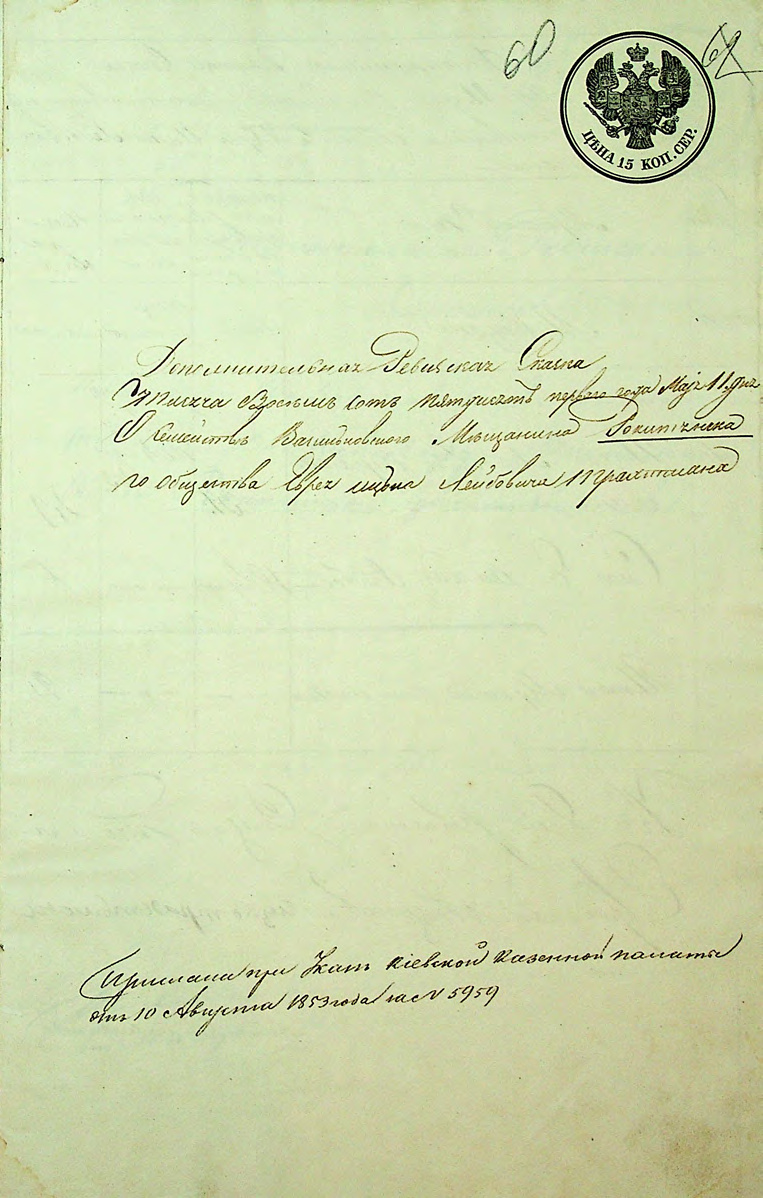 60
ЦѢНА 15 КОП. СЕР.
Дополнительная Ревизская Сказка
Тысяча Восемь сотъ пятдесятъ перваго года Мая 11 дня
О семействѣ Васильковского Мѣщанина Рокитянска
го общества Еврея Лейбовича Трахтмана
Прислана при Указѣ Кіевской Казенной палаты
отъ 10 Августа 1853 года за № 5959